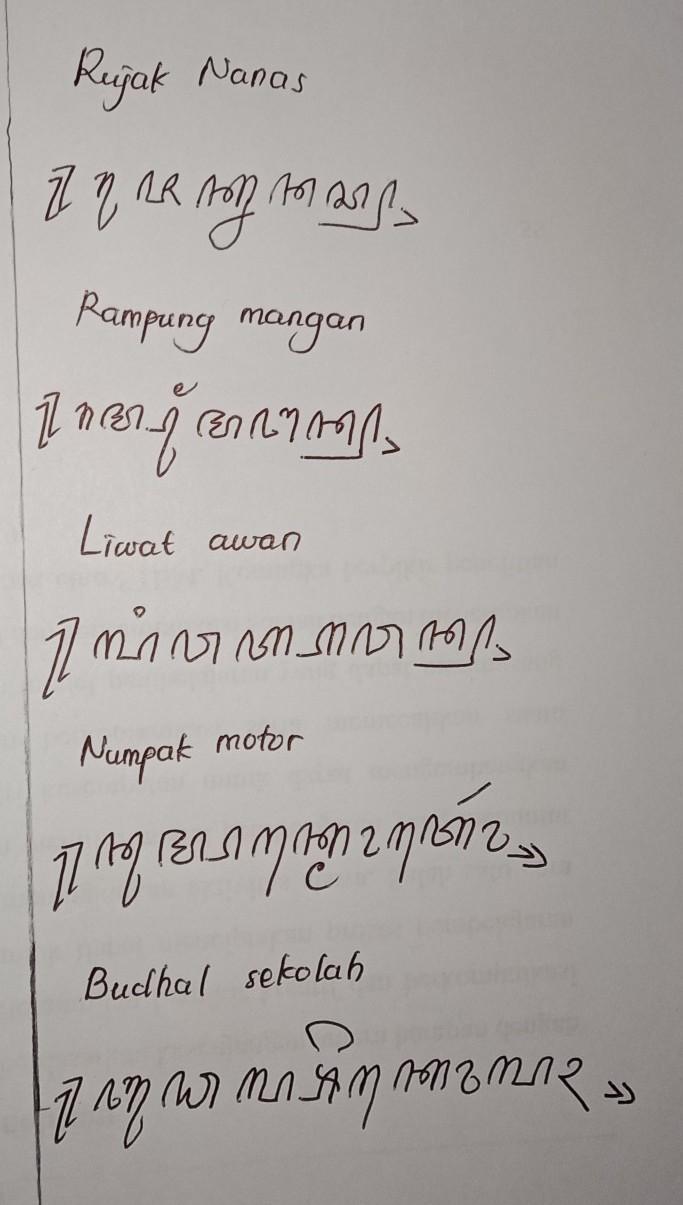 Rujak Nanas
꧋ꦫꦸꦗꦏ꧀ꦤꦤꦱ꧀꧈
Rampung mangan
꧋ꦫꦩ꧀ꦥꦸꦁꦩꦔꦤ꧀꧈
Liwat awan
꧋ꦭꦶꦮꦠ꧀ꦲꦮꦤ꧀꧈
Numpak motor
꧋ꦤꦸꦩ꧀ꦥꦏ꧀ꦩꦺꦴꦠꦺꦴꦂ꧉
Budhal sekolah
꧋ꦧꦸꦝꦭ꧀ꦱꦼꦏꦺꦴꦭꦃ꧉